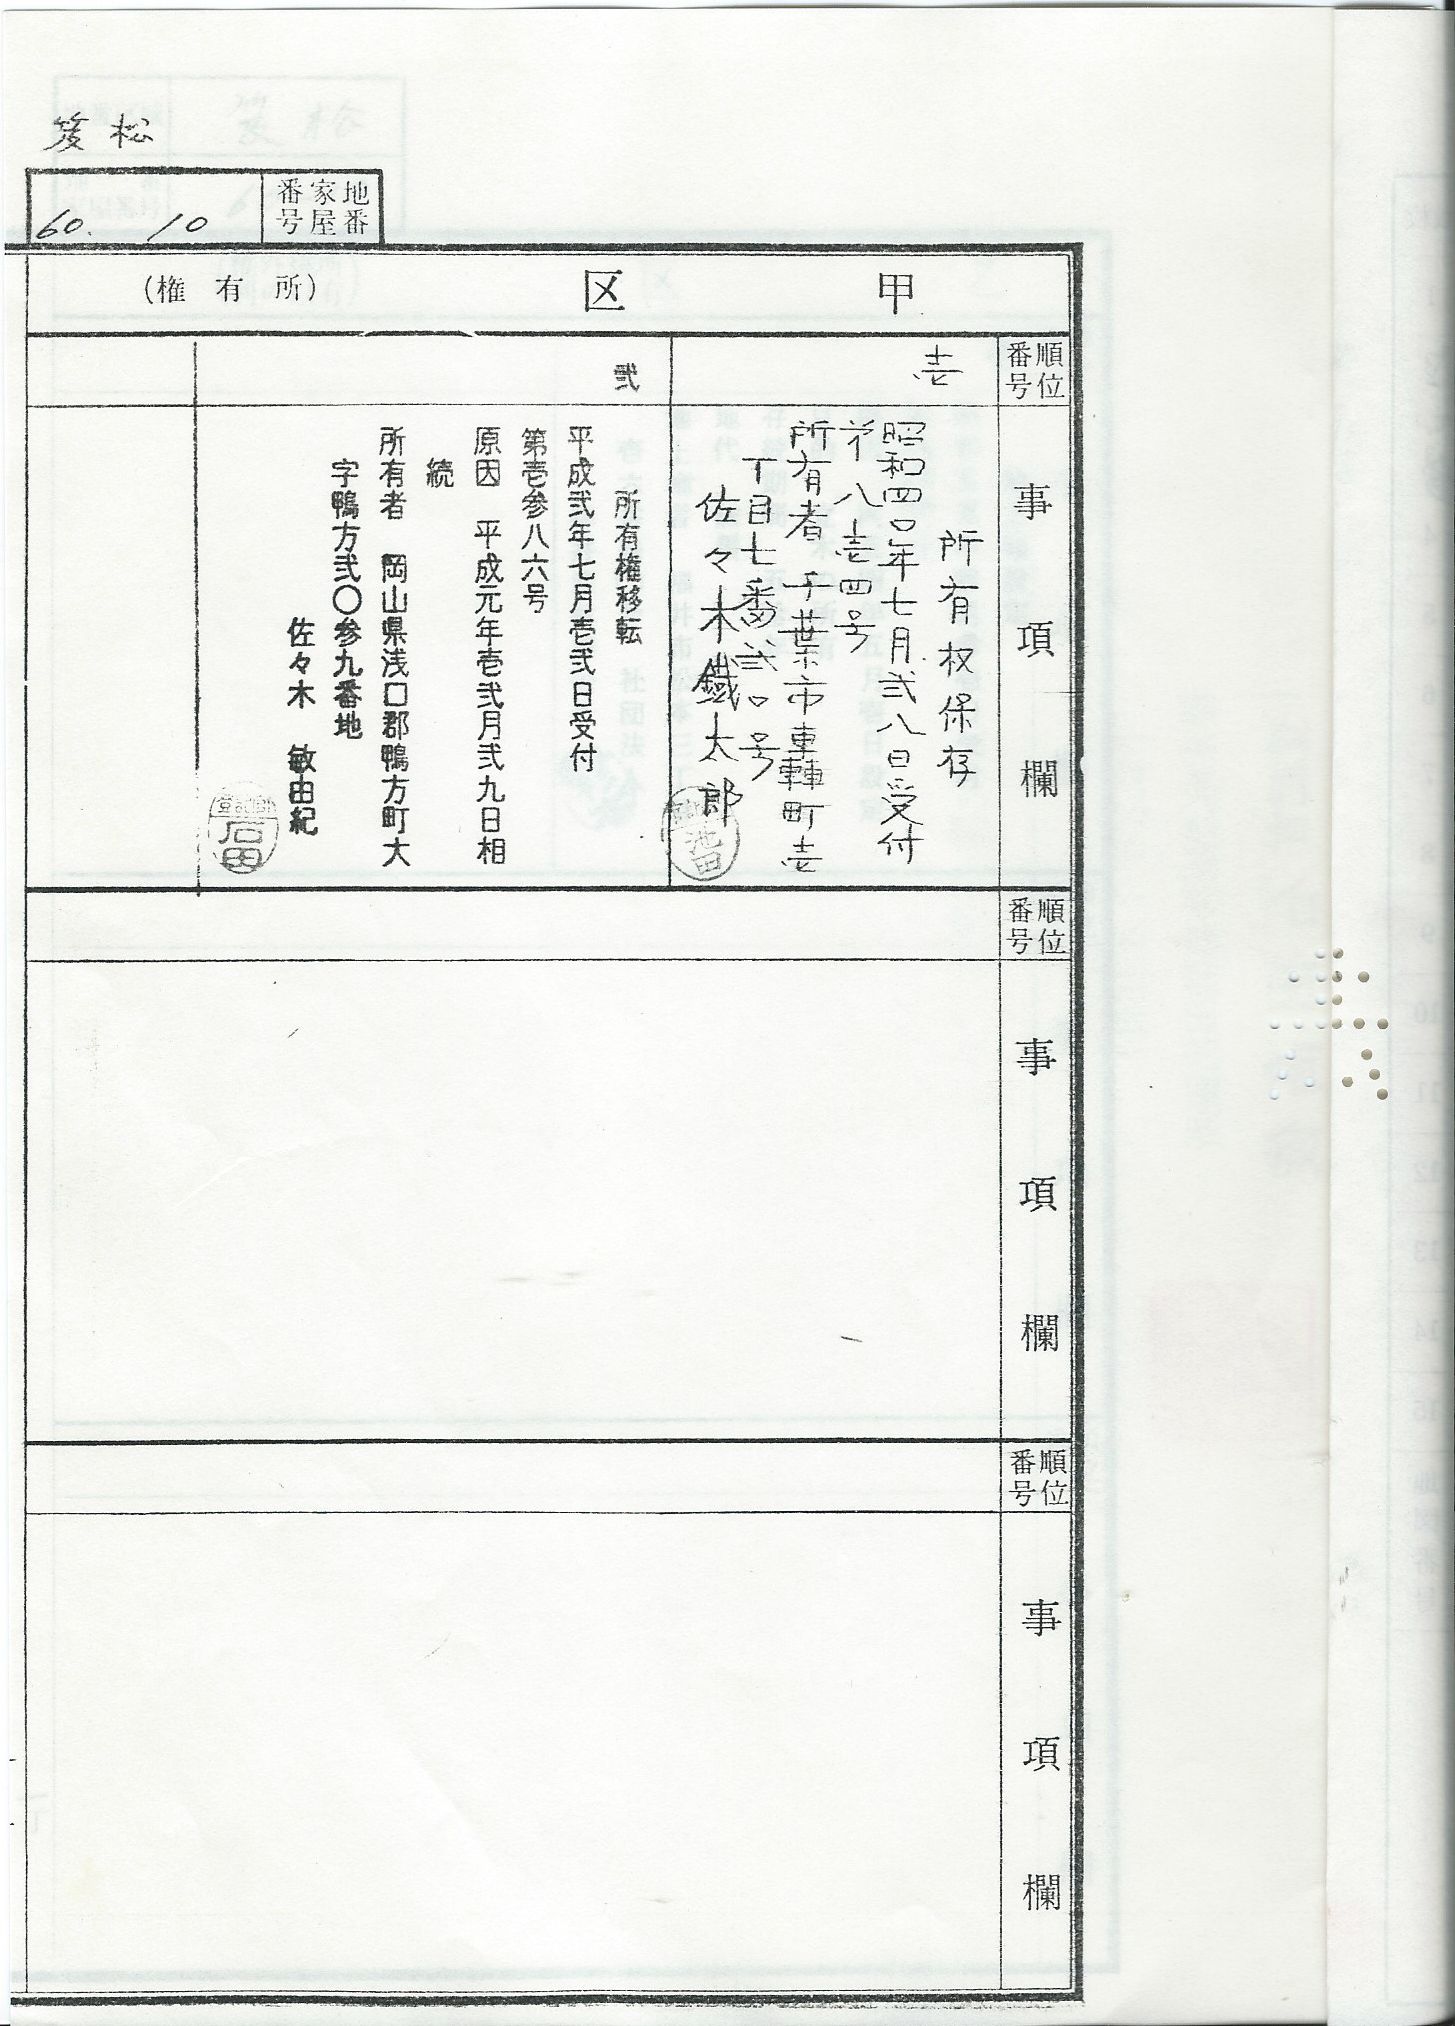 笈松
地番
家屋
番号
60. 10
甲区(所有権)
順位
番号
事項欄
壱
所有权保存
昭和四〇年七月弐八日受付
第八壱四号
所有者 千葉市轟町壱
丁目七番弐〇号
佐々木鐵太郎
池田
弐
所有権移転
平成弐年七月壱弐日受付
第壱参八六号
原因 平成元年壱弐月弐九日相
続
所有者 岡山県浅口郡鴨方町大
字鴨方弐〇参九番地
佐々木 敏由紀
石田
順位
番号
事項欄
順位
番号
事項欄